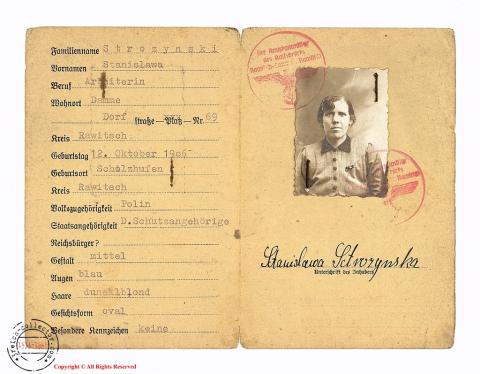 Familienname Strozynski
Vornamen Stanislawa
Beruf Arbeiterin
Wohnort Damme
Dorf straße-Platz-Nr. 69
Kreis Rawitsch
Geburtstag 12. Oktober 1906
Geburtsort Scholzhufen
Kreis Rawitsch
Volkszugehörigkeit Polin
Staatsangehörigkeit D.Schutzangehörige
Reichsbürger?
Gestalt mittel
Augen blau
Haare dunkelblond
Gesichtsform oval
Besondere Kennzeichen keine
Stanislawa Strozynska
Unterschrift des Inhabers
Copyright © All Rights Reserved